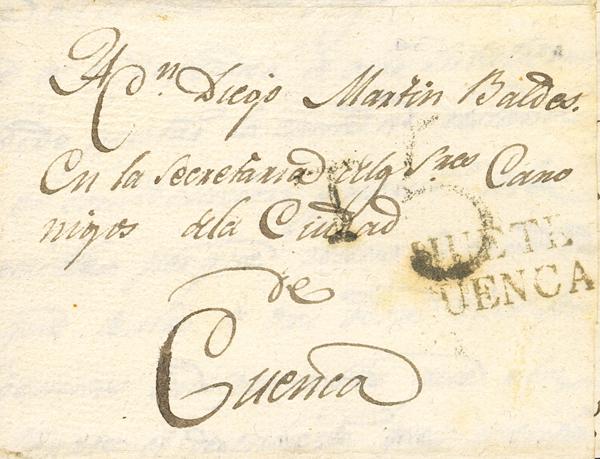 A Dn. Diego Martin Baldes.
En la Secretaria de los Sres Cano
nigos de la Ciudad
de
Cuenca
HUETE
CUENCA